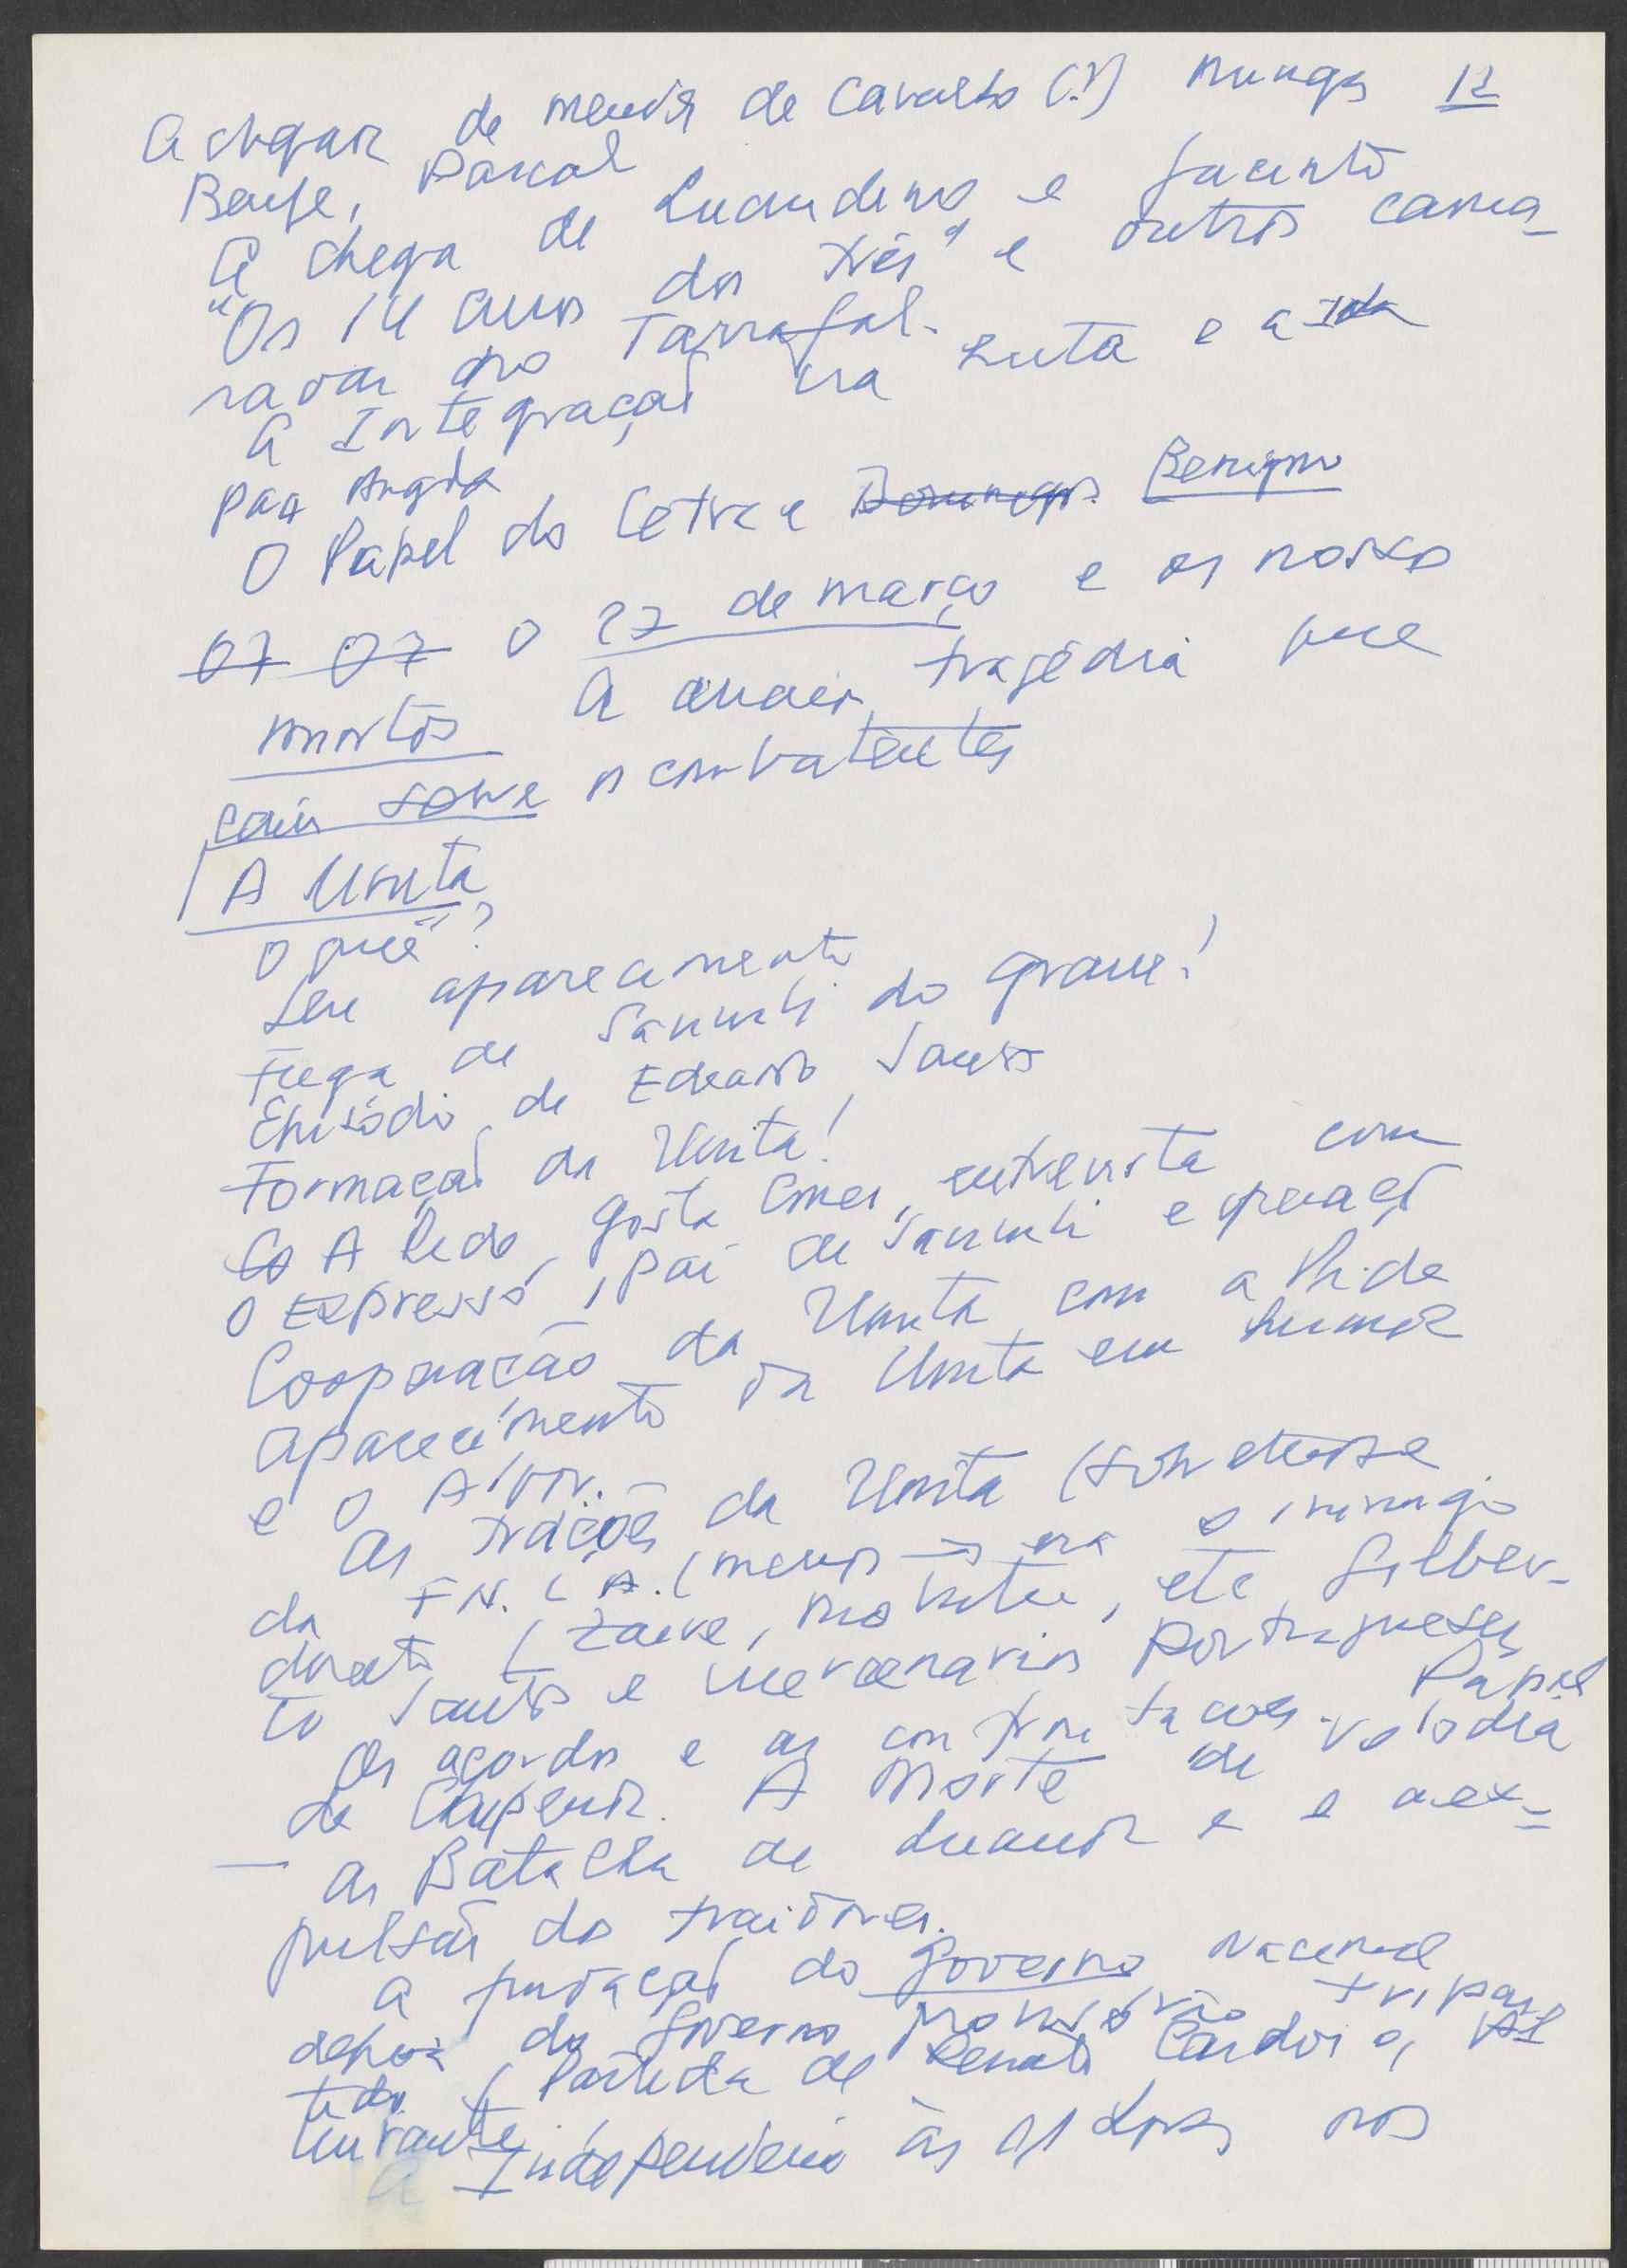 A chegar de Mendes de Carvalho (?) 12
Benje, Pascal
A chega de Luandino e Jacinto
"Os 14 anos dos três" e outros cama-
radas no Tarrafal.
A Integração na Luta e a Ida
para Angola
O Papel do Cetra e Domingos. Benigno
07 07 o 27 de março e os nossos
mortos A maior tragédia que
caiu sobre os combatentes
A Unita
O quê?
Seu aparecimento
Fuga de Savimbi do grave!
Episódio de Eduardo Santos
Formação da Unita!
A Pide, Costa Gomes, entrevista com
O Expresso, pai de Savimbi e operação
Cooperação da Unita com a Pide
Aparecimento da Unita em Luanda
e o Alvor.
As traições da Unita (sobretudo
da F.N.L.A. (menos → era o inimigo
directo (Zaire, Mobutu, etc Gilber-
to Santos e mercenários portugueses
Os acordos e as confrontações. Papel
de Chipenda. A Morte de Valódia
— As Batalha de Luanda e e a ex-
pulsão dos traidores.
A fundação do Governo Nacional
depois do Governo provisório tripar-
tido. (Partida de Renato Cardoso, Al
mirante
A Independência às 01 horas nos